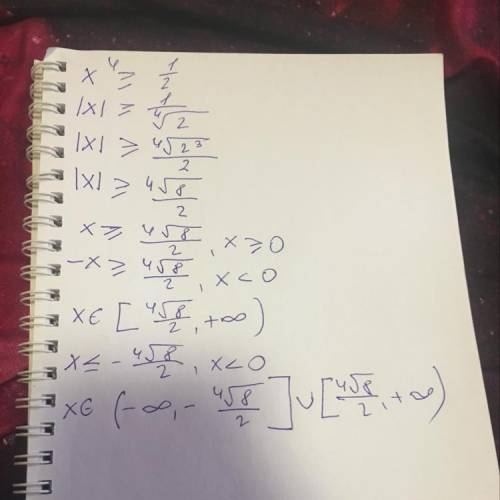 x⁴ ≥ 1/2
|x| ≥ 1/⁴√2
|x| ≥ ⁴√2³/2
|x| ≥ ⁴√8/2
x ≥ ⁴√8/2, x ≥ 0
-x ≥ ⁴√8/2, x < 0
x∈ [⁴√8/2, +∞)
x ≤ -⁴√8/2, x < 0
x∈ (-∞, -⁴√8/2] ∪ [⁴√8/2, +∞)